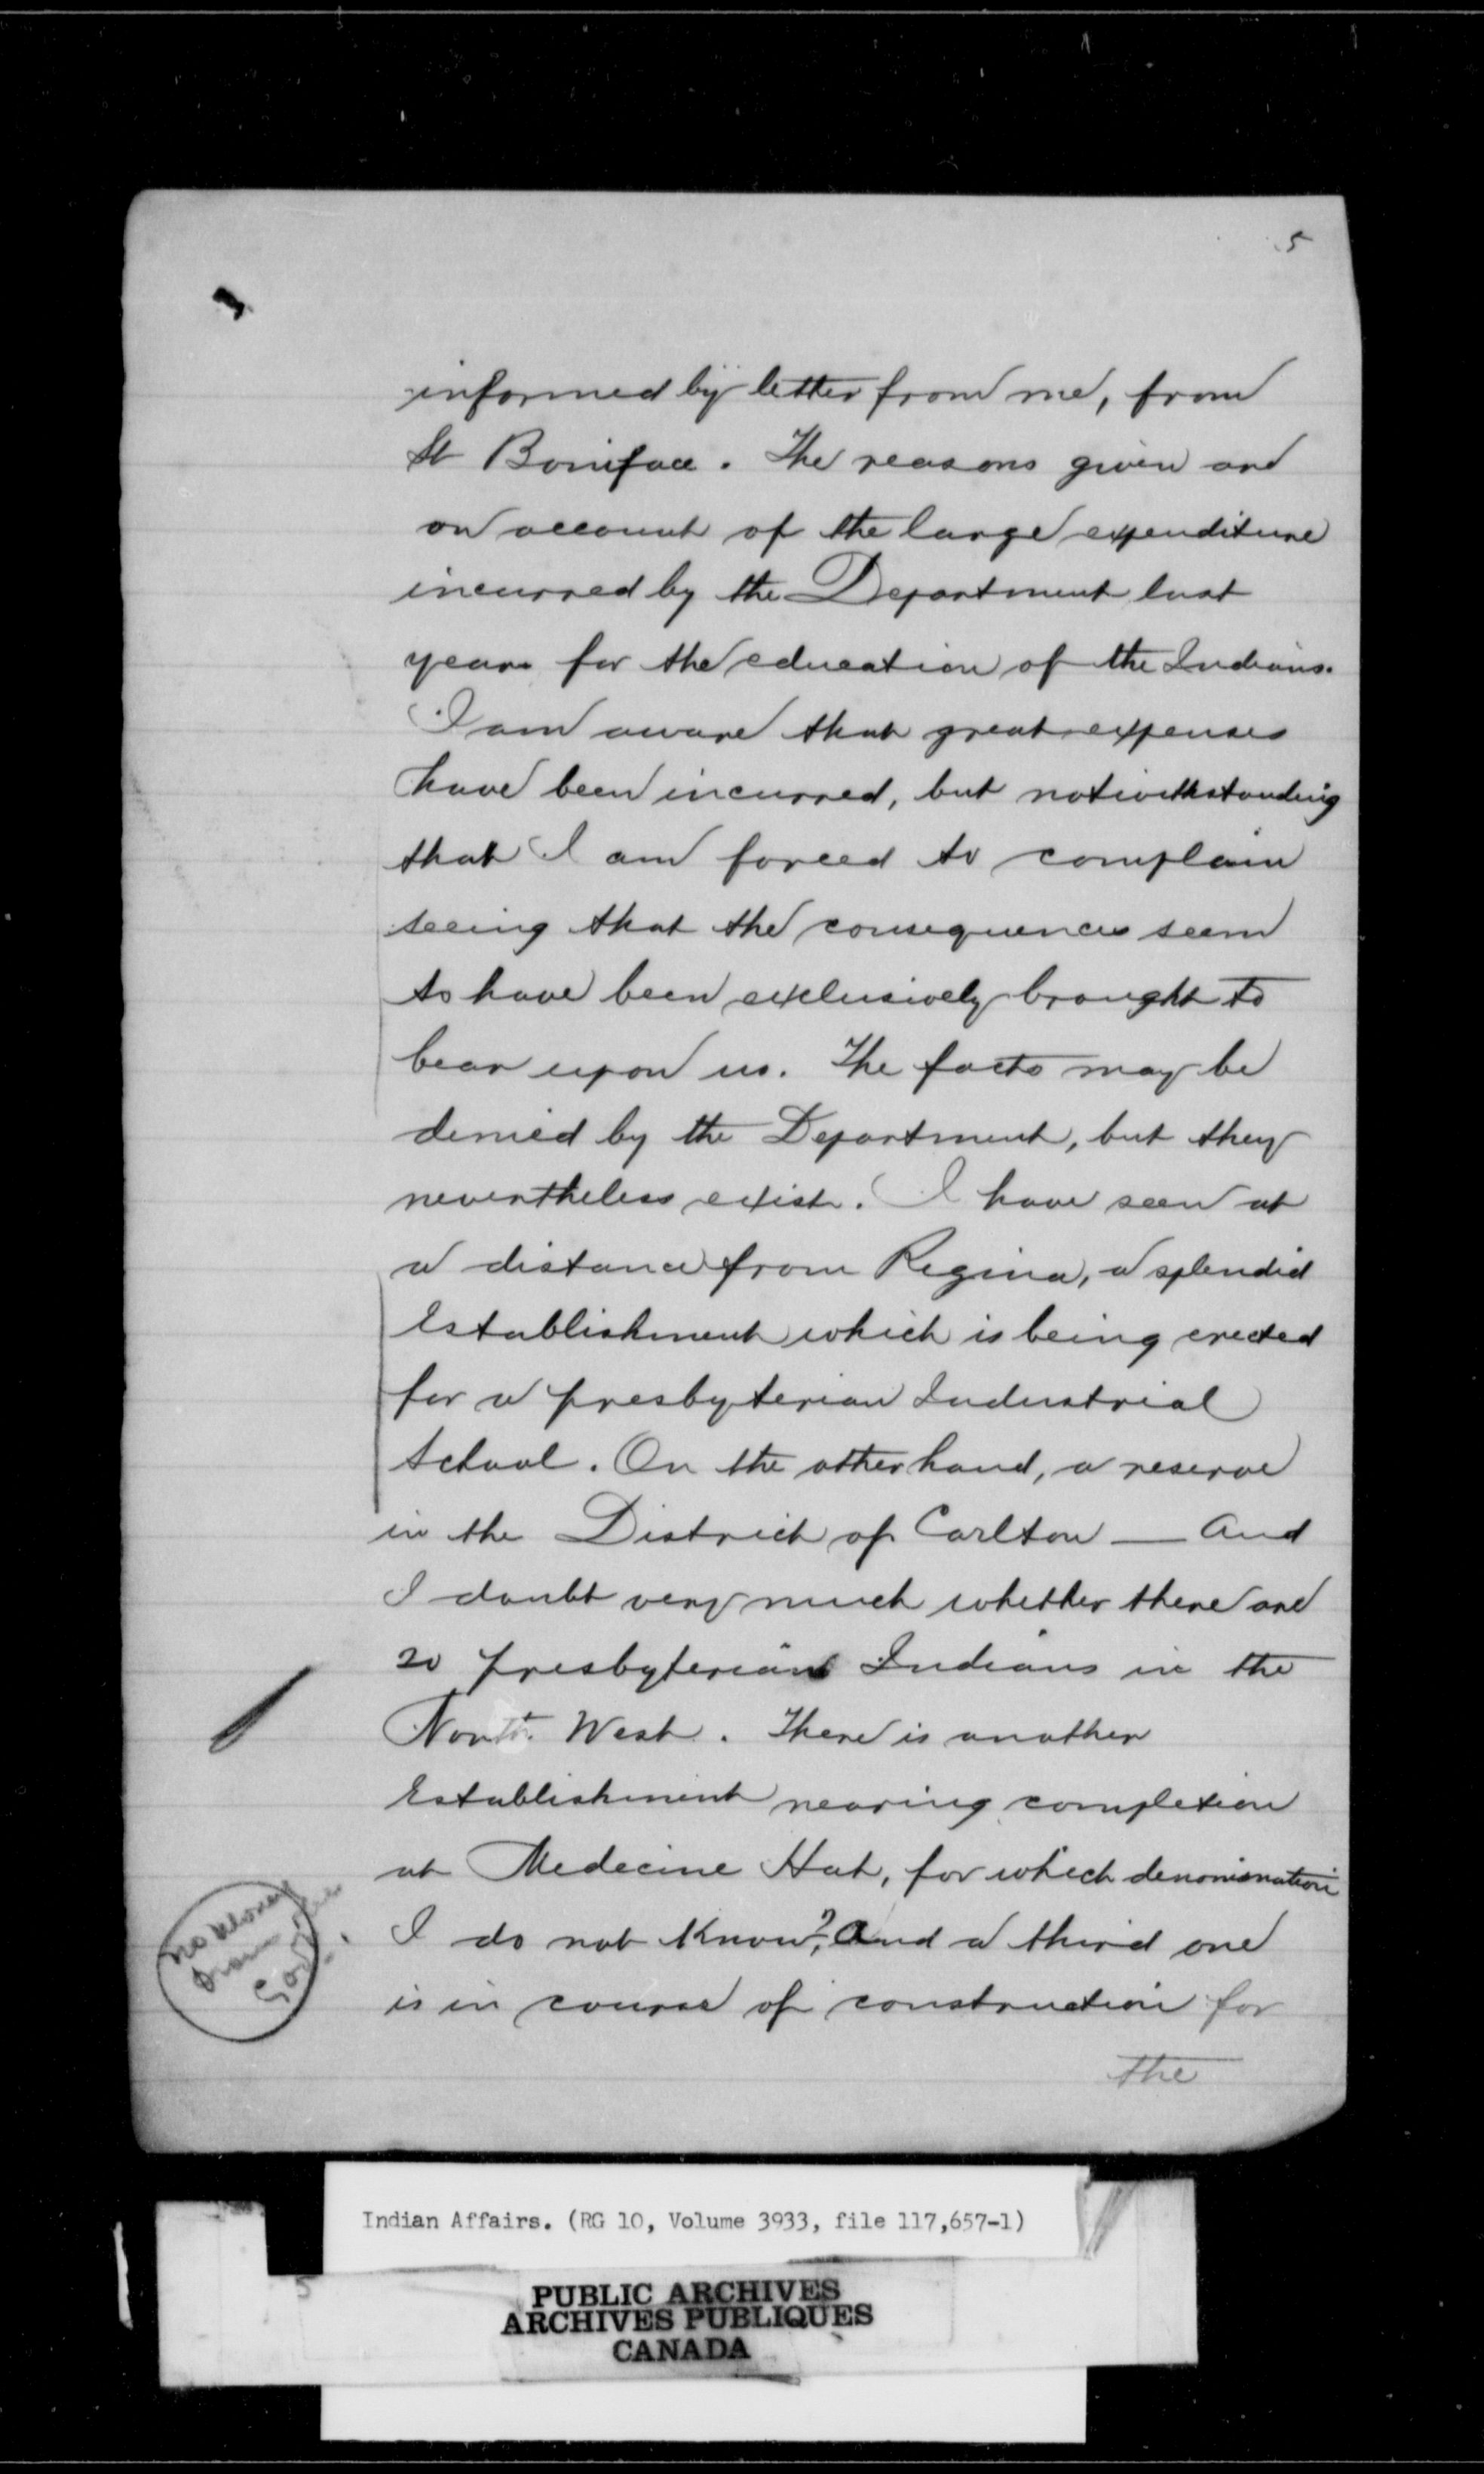 5
informed by letter from me, from
St Boniface. The reasons given are
on account of the large expenditure
incurred by the Department last
year for the education of the Indians.
I am aware that great expenses
have been incurred, but notwithstanding
that I am forced to complain
seeing that the consequences seem
to have been exclusively brought to
bear upon us. The facts may be
denied by the Department, but they
nevertheless exist. I have seen at
a distance from Regina, a splendid
Establishment which is being erected
for a presbyterian Industrial
School. On the other hand, a reserve
in the District of Carlton — And
I doubt very much whether there are
20 presbyterians Indians in the
North West. There is another
Establishment nearing completion
at Medecine Hat, for which denomination
I do not know?, And a third one
is in course of construction for
the
no money
from
Govt.
Indian Affairs. (RG 10, Volume 3933, file 117,657-1)
5
PUBLIC ARCHIVES
ARCHIVES PUBLIQUES
CANADA